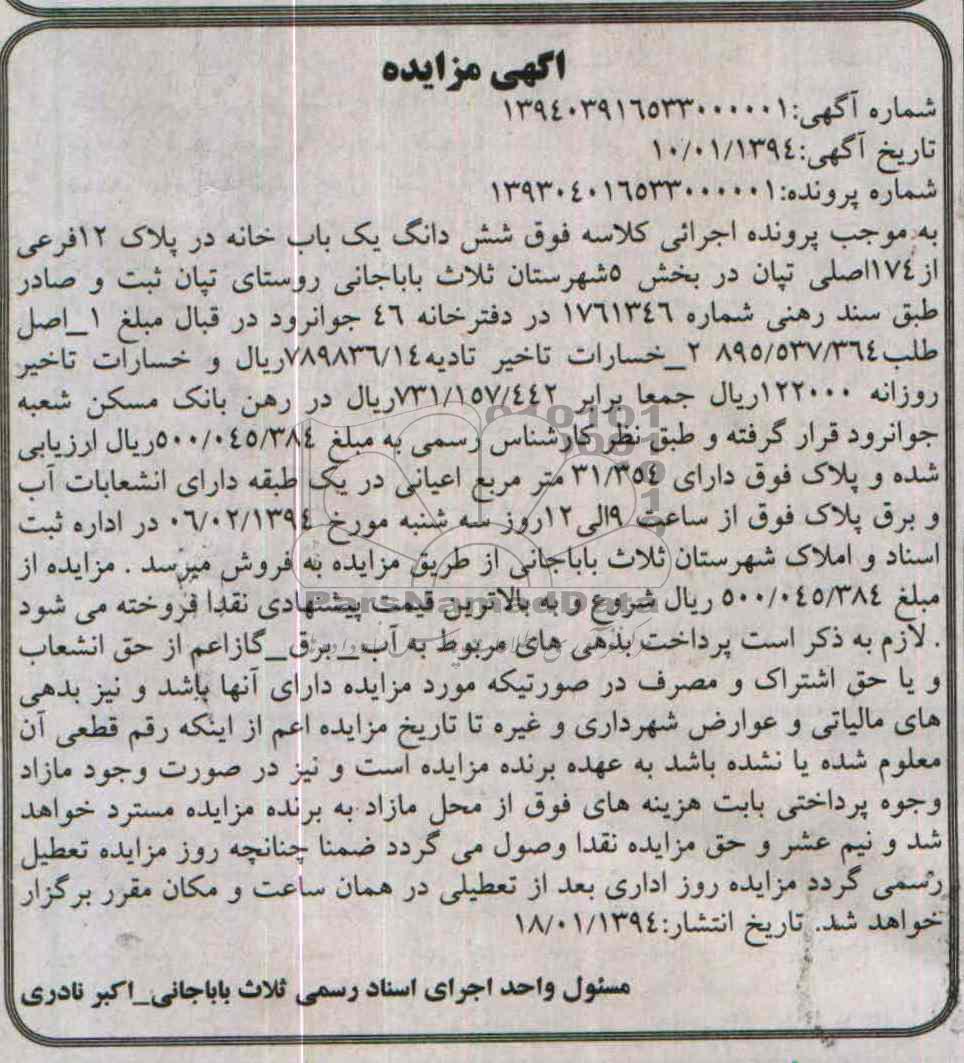 اگهی مزایده
شماره آگهی:۱۳۹٤۰۳۹۱٦٥۳۳۰۰۰۰۰۱
تاریخ آگهی:۱۰/۰۱/۱۳۹٤
شماره پرونده:۱۳۹۳۰٤۰۱٦٥۳۳۰۰۰۰۰۱
به موجب پرونده اجرائی کلاسه فوق شش دانگ یک باب خانه در پلاک ۱۲فرعی
از۱۷٤اصلی تپان در بخش ٥شهرستان ثلاث باباجانی روستای تپان ثبت و صادر
طبق سند رهنی شماره ۱۷٦۱۳٤٦ در دفترخانه ٤٦ جوانرود در قبال مبلغ ۱_اصل
طلب۸۹٥/٥۳۷/۳٦٤ ۲_خسارات تاخیر تادیه۷۸۹۸۳٦/۱٤ریال و خسارات تاخیر
روزانه ۱۲۲۰۰۰ریال جمعا برابر ۷۳۱/۱٥۷/٤٤۲ریال در رهن بانک مسکن شعبه
جوانرود قرار گرفته و طبق نظر کارشناس رسمی به مبلغ ٥۰۰/۰٤٥/۳۸٤ریال ارزیابی
شده و پلاک فوق دارای ۳۱/۳٥٤ متر مربع اعیانی در یک طبقه دارای انشعابات آب
و برق پلاک فوق از ساعت ۹الی۱۲روز سه شنبه مورخ ۰٦/۰۲/۱۳۹٤ در اداره ثبت
اسناد و املاک شهرستان ثلاث باباجانی از طریق مزایده به فروش میرسد . مزایده از
مبلغ ٥۰۰/۰٤٥/۳۸٤ ریال شروع و به بالاترین قیمت پیشنهادی نقدا فروخته می شود
. لازم به ذکر است پرداخت بدهی های مربوط به آب_برق_گازاعم از حق انشعاب
و یا حق اشتراک و مصرف در صورتیکه مورد مزایده دارای آنها باشد و نیز بدهی
های مالیاتی و عوارض شهرداری و غیره تا تاریخ مزایده اعم از اینکه رقم قطعی آن
معلوم شده یا نشده باشد به عهده برنده مزایده است و نیز در صورت وجود مازاد
وجوه پرداختی بابت هزینه های فوق از محل مازاد به برنده مزایده مسترد خواهد
شد و نیم عشر و حق مزایده نقدا وصول می گردد ضمنا چنانچه روز مزایده تعطیل
رسمی گردد مزایده روز اداری بعد از تعطیلی در همان ساعت و مکان مقرر برگزار
خواهد شد. تاریخ انتشار:۱۸/۰۱/۱۳۹٤
مسئول واحد اجرای اسناد رسمی ثلاث باباجانی_اکبر نادری
ParsNamadData